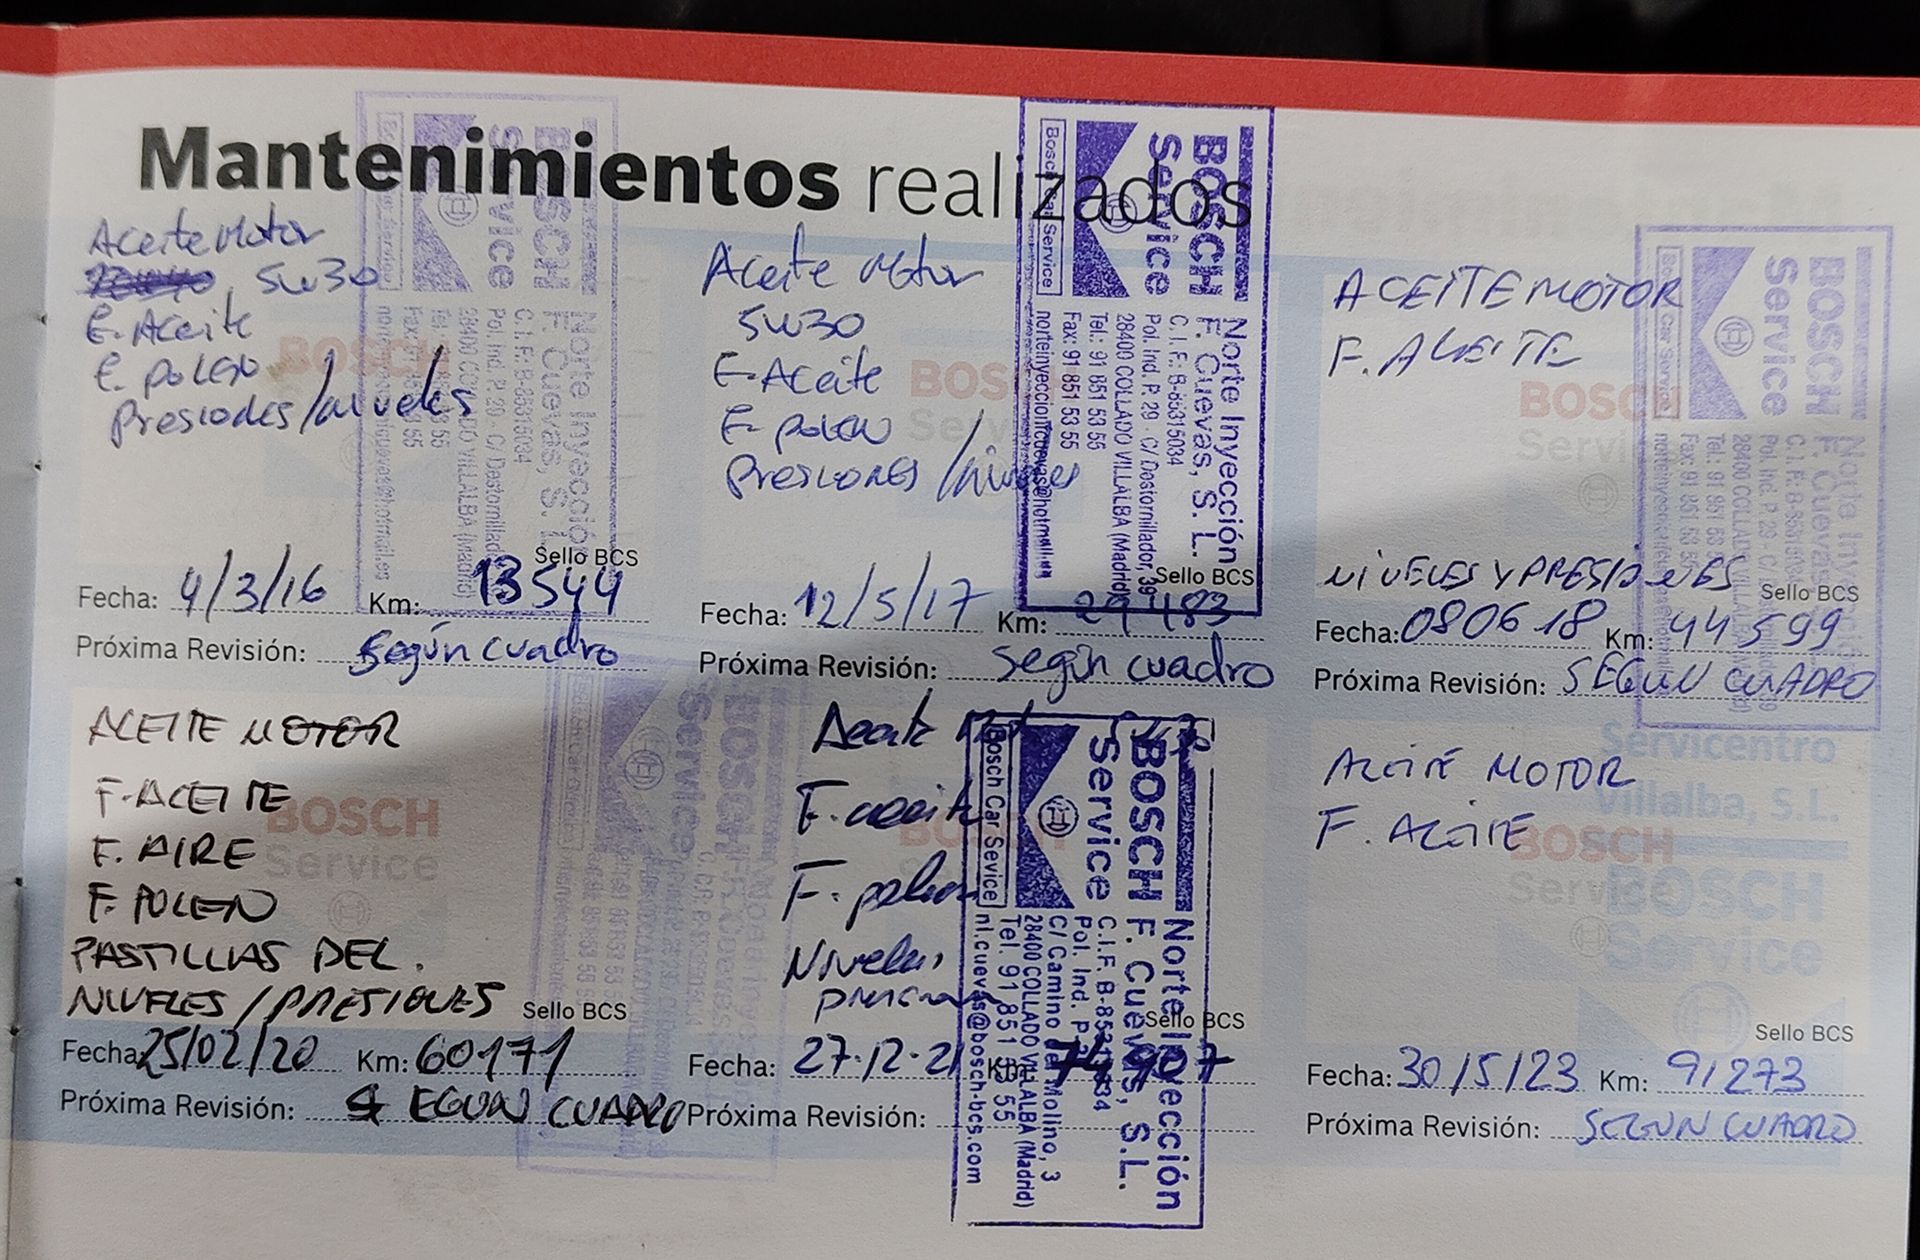 Mantenimientos realizados
Aceite Motor
5w30
F. Aceite
F. polen
Presiones/niveles
BOSCH
Service
Sello BCS
Fecha: 4/3/16 Km: 13544
Próxima Revisión: Según cuadro
BOSCH
Service
Bosch Car Service
Norte Inyección
F. Cuevas, S. L.
C. I. F.: B-85315034
28400 COLLADO VILLALBA (Madrid)
Aceite Motor
5w30
F. Aceite
F. polen
Presiones/niveles
BOSCH
Service
Sello BCS
Fecha: 12/5/17 Km: 29483
Próxima Revisión: Según cuadro
BOSCH
Service
Bosch Car Service
Norte Inyección
F. Cuevas, S. L.
C. I. F.: B-85315034
Pol. Ind. P. 29 - C/ Destornillador, 39
28400 COLLADO VILLALBA (Madrid)
Tel.: 91 851 53 55
Fax: 91 851 53 55
norteinyeccionfcuevas@hotmail.es
ACEITE MOTOR
F. ACEITE
BOSCH
Service
NIVELES Y PRESIONES
Sello BCS
Fecha: 080618 Km: 44599
Próxima Revisión: SEGUN CUADRO
BOSCH
Service
Bosch Car Service
F. Cuevas
28400 COLLADO VILLALBA
Tel.: 91 851 53 55
Fax: 91 851 53 55
ACEITE MOTOR
F. ACEITE
F. AIRE
F. POLEN
PASTILLAS DEL.
NIVELES/PRESIONES
BOSCH
Service
Sello BCS
Fecha: 25/02/20 Km: 60171
Próxima Revisión: SEGUN CUADRO
BOSCH
Service
Aceite Mot 5w30
F. aceite
F. polen
Niveles,
presiones
Sello BCS
Fecha: 27-12-21 Km: 74907
Próxima Revisión:
BOSCH
Service
Bosch Car Service
Norte Inyección
F. Cuevas, S.L.
C.I.F. B-85315034
C/ Camino del Molino, 3
28400 COLLADO VILLALBA (Madrid)
Tel. 91 851 53 55
nl.cuevas@bosch-bcs.com
ACEITE MOTOR
F. ACEITE
BOSCH
Service
Sello BCS
Fecha: 30/5/23 Km: 91273
Próxima Revisión: SEGUN CUADRO
Servicentro
Villalba, S.L.
BOSCH
Service